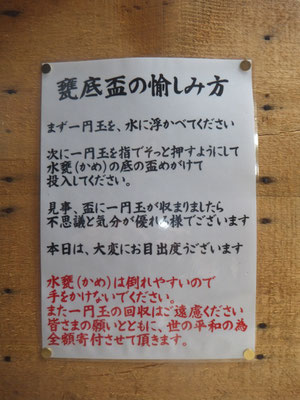 甕底盃の愉しみ方
まず一円玉を、水に浮かべてください
次に一円玉を指でそっと押すようにして
水甕(かめ)の底の盃めがけて
投入してください。
見事、盃に一円玉が収まりましたら
不思議と気分が優れる様でございます
本日は、大変にお目出度うございます
水甕(かめ)は倒れやすいので
手をかけないでください。
また一円玉の回収はご遠慮ください
皆さまの願いとともに、世の平和の為
全額寄付させて頂きます。